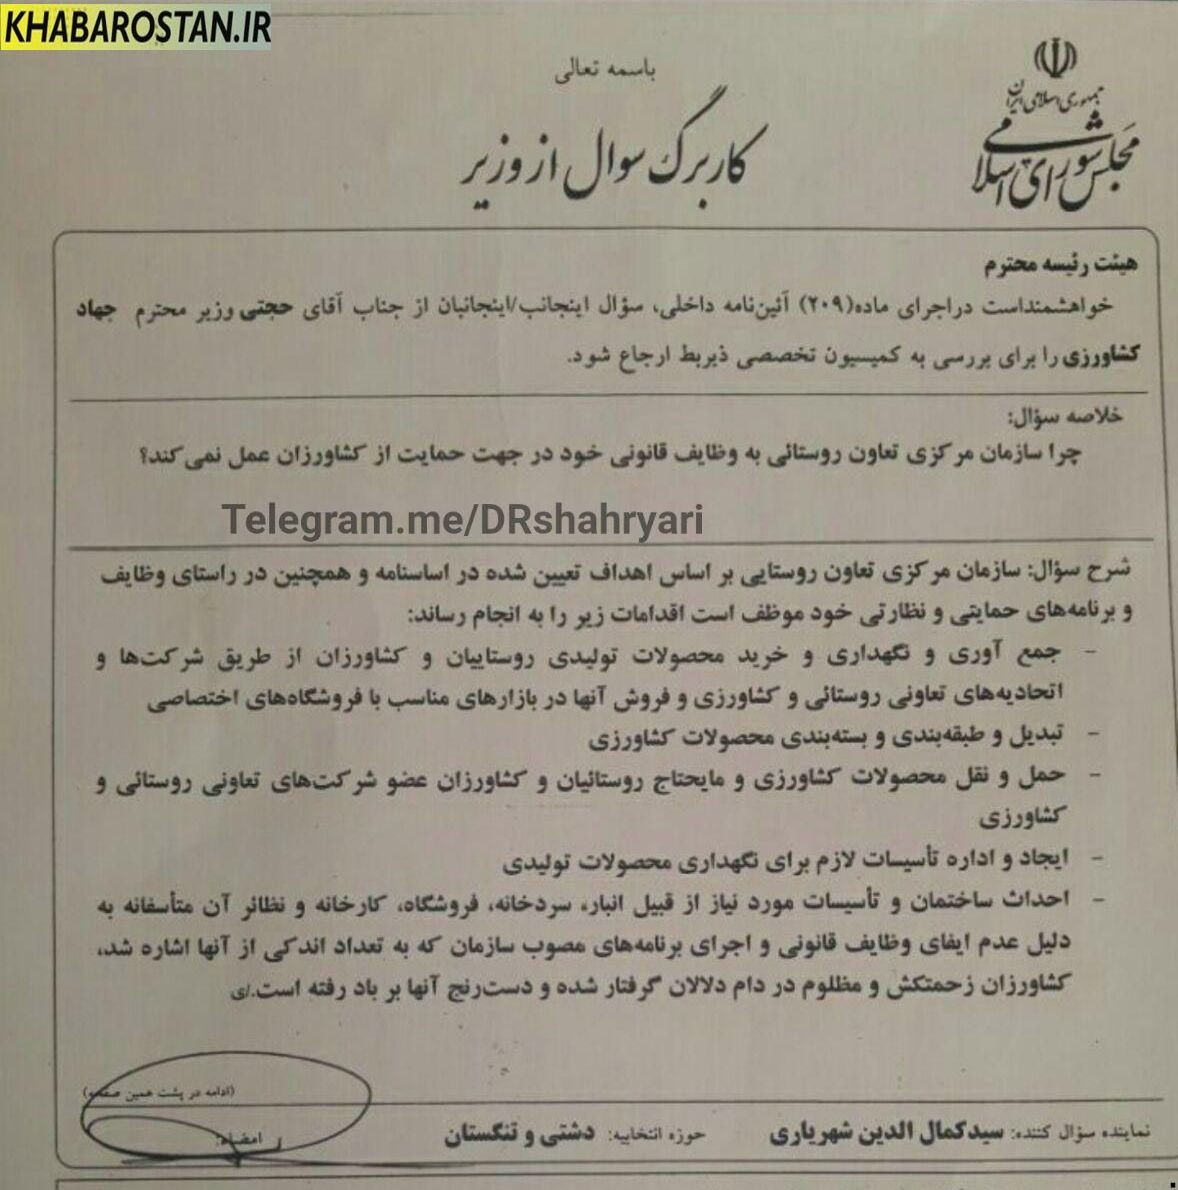 KHABAROSTAN.IR
باسمه تعالی
جمهوری اسلامی ایران
مجلس شورای اسلامی
کاربرگ سوال از وزیر
هیئت رئیسه محترم
خواهشمنداست دراجرای ماده(۲۰۹) آئین‌نامه داخلی، سؤال اینجانب/اینجانبان از جناب آقای حجتی وزیر محترم جهاد
کشاورزی را برای بررسی به کمیسیون تخصصی ذیربط ارجاع شود.
خلاصه سؤال:
چرا سازمان مرکزی تعاون روستائی به وظایف قانونی خود در جهت حمایت از کشاورزان عمل نمی‌کند؟
Telegram.me/DRshahryari
شرح سؤال: سازمان مرکزی تعاون روستایی بر اساس اهداف تعیین شده در اساسنامه و همچنین در راستای وظایف
و برنامه‌های حمایتی و نظارتی خود موظف است اقدامات زیر را به انجام رساند:
- جمع آوری و نگهداری و خرید محصولات تولیدی روستاییان و کشاورزان از طریق شرکت‌ها و
اتحادیه‌های تعاونی روستائی و کشاورزی و فروش آنها در بازارهای مناسب با فروشگاه‌های اختصاصی
- تبدیل و طبقه‌بندی و بسته‌بندی محصولات کشاورزی
- حمل و نقل محصولات کشاورزی و مایحتاج روستائیان و کشاورزان عضو شرکت‌های تعاونی روستائی و
کشاورزی
- ایجاد و اداره تأسیسات لازم برای نگهداری محصولات تولیدی
- احداث ساختمان و تأسیسات مورد نیاز از قبیل انبار، سردخانه، فروشگاه، کارخانه و نظائر آن متأسفانه به
دلیل عدم ایفای وظایف قانونی و اجرای برنامه‌های مصوب سازمان که به تعداد اندکی از آنها اشاره شد،
کشاورزان زحمتکش و مظلوم در دام دلالان گرفتار شده و دست‌رنج آنها بر باد رفته است./ی
(ادامه در پشت همین صفحه)
نماینده سؤال کننده: سیدکمال الدین شهریاری حوزه انتخابیه: دشتی و تنگستان امضاء: